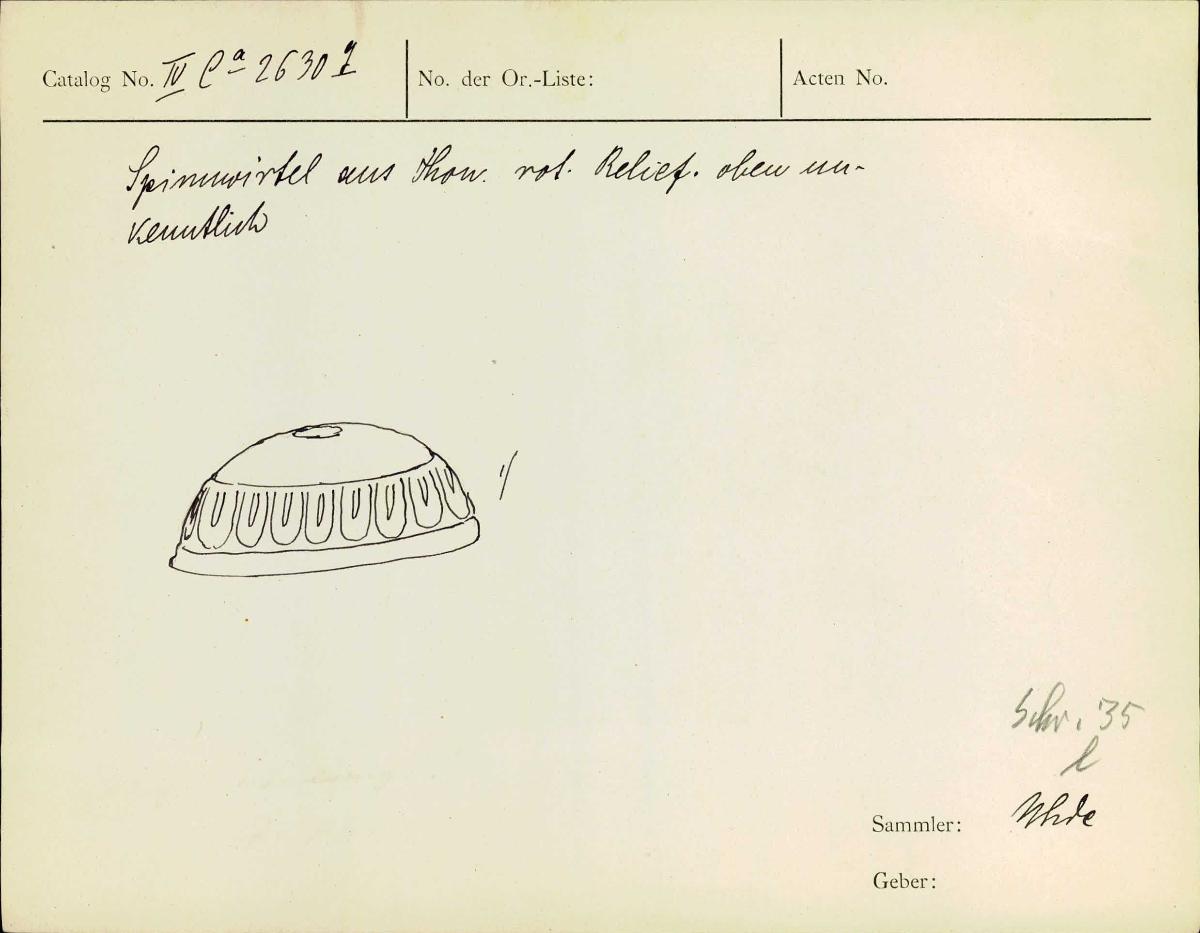 Catalog No. IV Ca 2630 No. der Or.-Liste: Acten No.
Spinnwirtel aus Thon. rot. Relief. oben un-
kenntlich
Schr. 35
l
Sammler: Uhde
Geber: